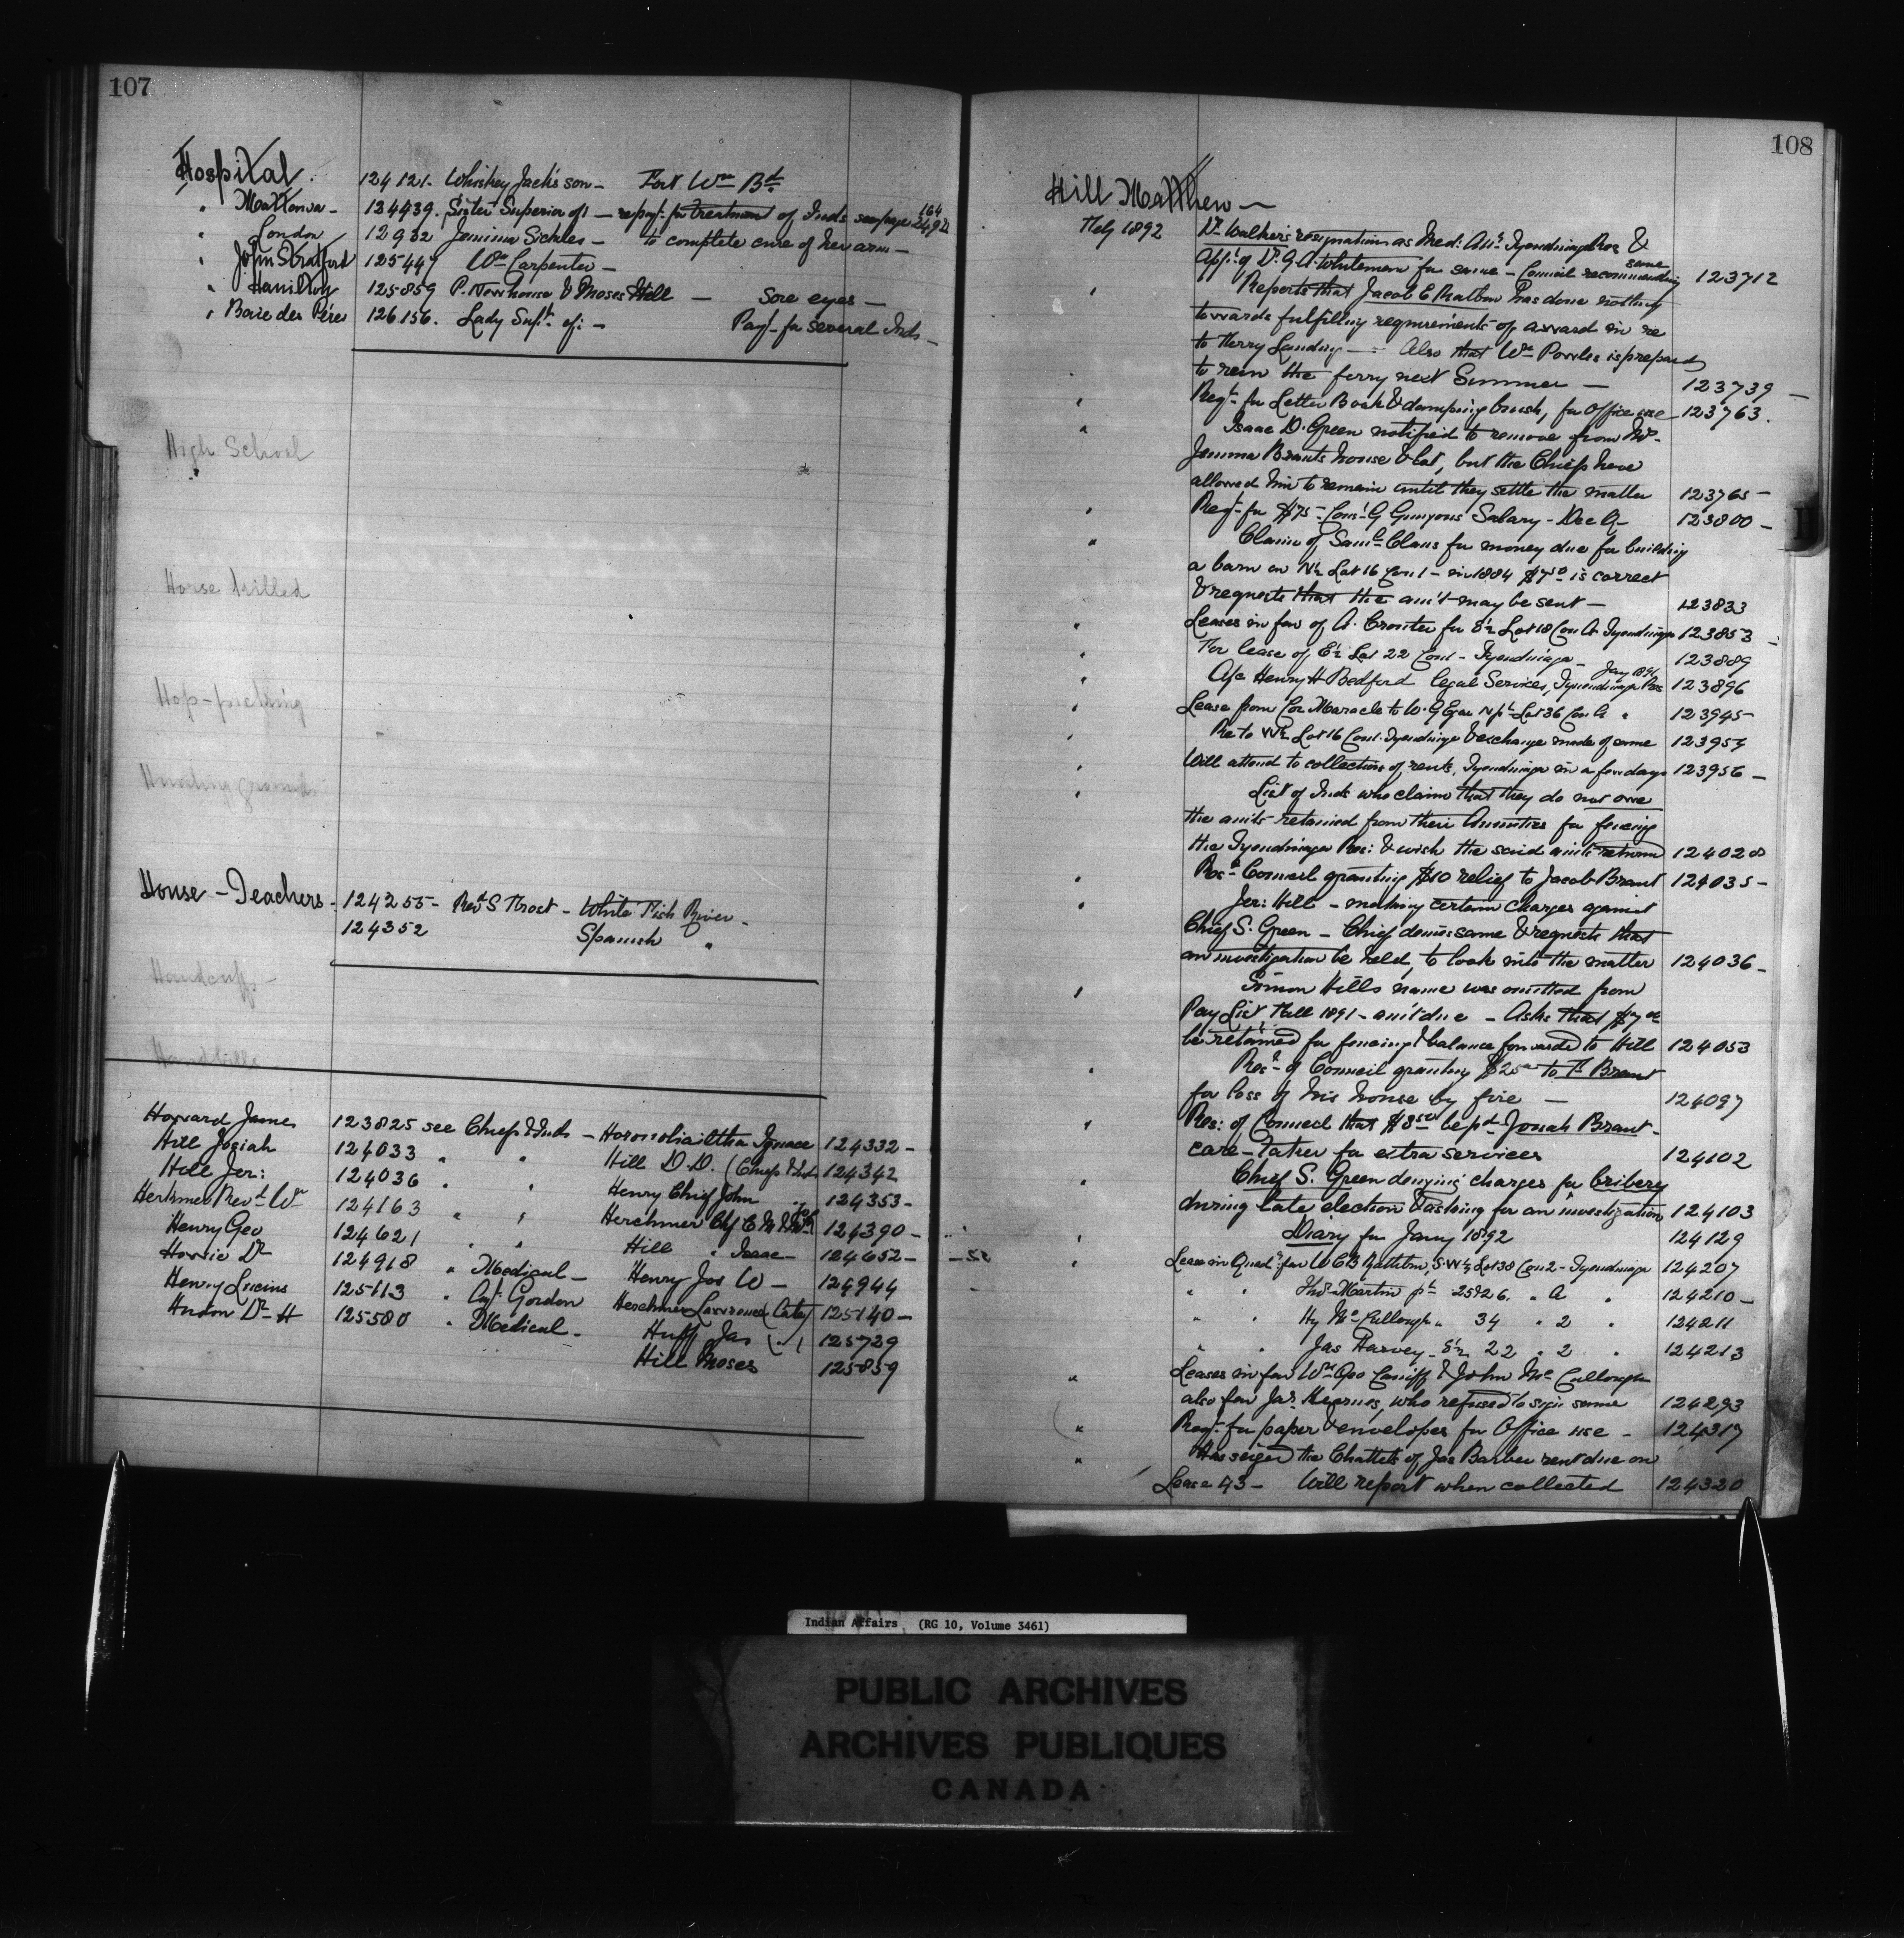 107
Hospital.
124121. Whiskey Jack's son - Fort Wm Bd
" Mattawa - 124439. Sister Superior of: - repayt. for treatment of Inds see page 164 24,922
" London 12932 Jemima Sickles - to complete cure of her arm -
" John Stratford 125447 Wm Carpenter -
" Hamilton 125859 P. Newhouse & Moses Hill - Sore eyes -
" Baie des Pères 126156. Lady Supt. of: - Payt. for several Inds -
High School
Horse killed
Hop-picking
Hunting grounds
House - Teachers - 124255 - Revd S Frost - White Fish River -
124352 Spanish "
Handcuffs -
Handbills
Howard James 123825 see Chiefs & Inds - Ignace 124332 -
Hill Josiah 124033 " " Hill D.D. (Chiefs & Inds 124342
Hill Jer: 124036 " " Henry Chief John " 124353 -
Herchmer Revd Wm 124163 " " Herchmer 124390 -
Henry Geo 124621 " " Hill " Isaac - 124652 -
Howie Dr 124918 " Medical - Henry Jos W - 124944
Henry Lucius 125113 " Agt. Gordon Herchmer Lawrence (Caty) 125140 -
Hudon Dr H 125580 " Medical - Huff Jas ( " ) 125729
Hill Moses 125859
108
Hill Matthew -
Feby 1892 Dr Walker's resignation as Med: Att: Tyendinaga Res &
appt. of Dr. G A Whiteman for same - Council recommending same 123712
" Reports that Jacob E Rathbun has done nothing
towards fulfilling requirements of award in re
to Ferry Landing - Also that Wm Powles is prepared
to run the ferry next Summer - 123739 -
" Reqt. for Letter Book & damping brush, for Office use 123763.
" Isaac D. Green notified to remove from Mrs.
Jemima Brants house & lot, but the Chiefs have
allowed him to remain until they settle the matter 123765 -
" Reqt. for $75 - Cons: G Gunyons Salary - Dec Q - 123800 -
" Claim of Saml Claus for money due for building
a barn on N½ Lot 16 Con 1 - in 1884 $7.50 is correct
& requests that the am't may be sent - 123833
" Leases in fav of A. Crouter for S½ Lot 18 Con A Tyendinaga 123853 -
" For lease of E½ Lot 22 Con 1 - Tyendinaga - 123889
" A/c Henry H Bedford legal Services, Tyendinaga Res Jany 1891 123896
" Lease from Cor Maracle to W. G Egar N pt Lot 36 Con A " 123945 -
" Re to W½ Lot 16 Con 1. Tyendinaga & exchange made of same 123954
" Will attend to collection of rents, Tyendinaga in a few days 123956 -
" List of Inds who claim that they do not owe
the amts retained from their Annuities for fencing
the Tyendinaga Res: & wish the said amts returned 124028
" Resn Council granting $10 relief to Jacob Brant 124035 -
" Jer: Hill - making certain charges against
Chief S. Green - Chief denies same & requests that
an investigation be held, to look into the matter 124036 -
" Simon Hills name was omitted from
Pay List Fall 1891 - am't due - Asks that $7.00
be retained for fencing & balance forwarded to Hill 124053
" Resn of Council granting $25.00 to F. Brant
for loss of his house by fire - 124097
" Res: of Council that $3.50 be pd Jonah Brant -
care-taker for extra services 124102
" Chief S. Green denying charges for bribery
during late election & asking for an investigation 124103
" Diary for Jany 1892 124129
" Lease in Quad: fav W C B Rathbun, S.W½ Lot 38 Con 2 - Tyendinaga 124207
" " Thos Martin pt 25 & 26 " A " 124210 -
" " Hy McCullough " 34 " 2 " 124211
" " Jas Harvey - S½ 22 " 2 " 124213
" Leases in fav Wm Geo Canniff & John McCullough
also fav Jas. Kearnes, who refused to sign same 124293
" Reqt. for paper & envelopes for Office use - 124317
" Has seized the Chattels of Jas Barber rent due on
Lease 43 - Will report when collected 124320
Indian Affairs (RG 10, Volume 3461)
PUBLIC ARCHIVES
ARCHIVES PUBLIQUES
CANADA